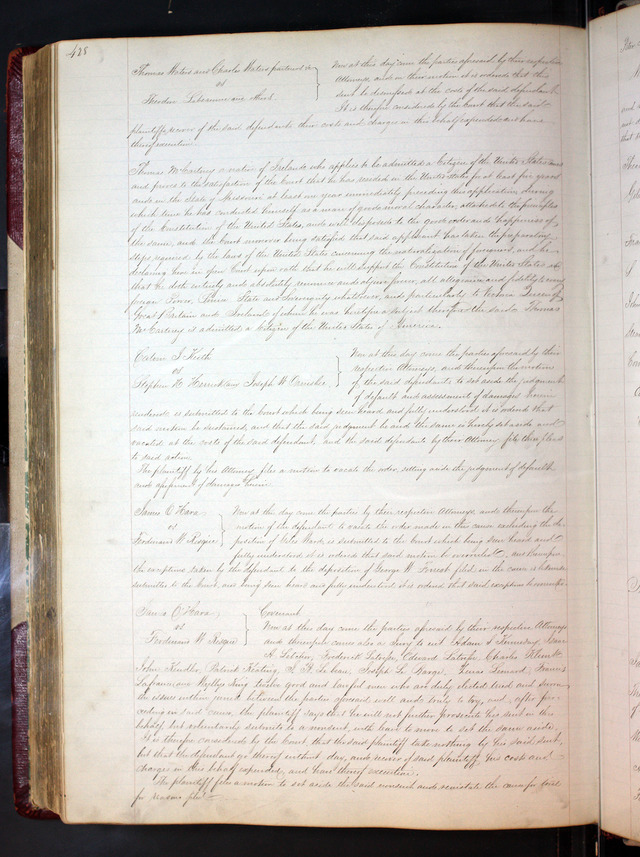 428
Thomas Waters and Charles Waters
vs
Theodore
Now at this day came the parties aforesaid by their respective
Attorneys and on their motion it is ordered that this
suit be dismissed at the costs of the said defendant
It is therefore considered by the Court that the said
plaintiffs recover of the said defendants their costs and charges in this behalf expended and have
thereof execution.
Thomas McCartney a native of Ireland who applies to be admitted a Citizen of the United States comes
and proves to the satisfaction of the Court that he has resided in the United States for at least five years
and in the State of Missouri at least one year immediately preceding this application during
which time he has conducted himself as a man of good moral character, attached to the principles
of the Constitution of the United States, and well disposed to the good order and happiness of
the same, and the Court moreover being satisfied that said applicant has taken the preparatory
steps required by the laws of the United States concerning the naturalization of foreigners, and he
declaring here in open Court upon oath that he will support the Constitution of the United States and
that he doth entirely and absolutely renounce and abjure forever, all allegiance and fidelity to every
foreign Power, Prince, State and Sovereignty whatsoever, and particularly to Victoria Queen of
Great Britain and Ireland of whom he was heretofore a subject Therefore the said Thomas
McCartney is admitted a Citizen of the United States of America.
J Keith
vs
Stephen and Joseph W
Now at this day came the parties aforesaid by their
respective Attorneys, and thereupon the motion
of the said defendants, to set aside the judgment
of default and assessment of damages herein
rendered is submitted to the Court which being seen heard and fully understood it is ordered that
said motion be sustained, and that the said judgment be and the same is hereby set aside and
vacated at the costs of the said defendant and the said defendants by their Attorney file their pleas
to said action.
The plaintiff by his Attorney files a motion to vacate the order, setting aside the judgment of default
and assessment of damages herein.
James O'Hara
vs
Ferdinand W Risque
Now at this day came the parties by their respective Attorneys and thereupon the
motion of the defendant to vacate the order made in this cause excluding the de-
position of is submitted to the Court which being seen heard and
fully understood it is ordered that said motion be overruled, and thereupon
the exceptions taken by the defendant to the deposition of George W filed in this cause is
submitted to the Court, and being seen heard and fully understood it is ordered that said exception be overruled
James O'Hara
vs
Ferdinand W Risque
Covenant
Now at this day came the parties aforesaid by their respective Attorneys
and thereupon came also a Jury to wit Adam S Isaac
A Letcher, Frederick Edward Charles
John Patrick Keating, L A Lebeau, Joseph Le Barge, Lucas Francis
being twelve good and lawful men who are duly elected tried and sworn
the issues within joined between the parties aforesaid well and truly to try, and, after pro-
ceeding in said cause, the plaintiff says that he will not further prosecute his suit in this
behalf but voluntarily submits to a nonsuit, with leave to move to set the same aside.
It is therefore considered by the Court that the said plaintiff take nothing by his said suit,
but that the defendant go thereof without day, and recover of said plaintiff, his costs and
charges in this behalf expended, and have thereof execution.
The plaintiff files a motion to set aside the said nonsuit and reinstate the cause for trial
for reasons filed